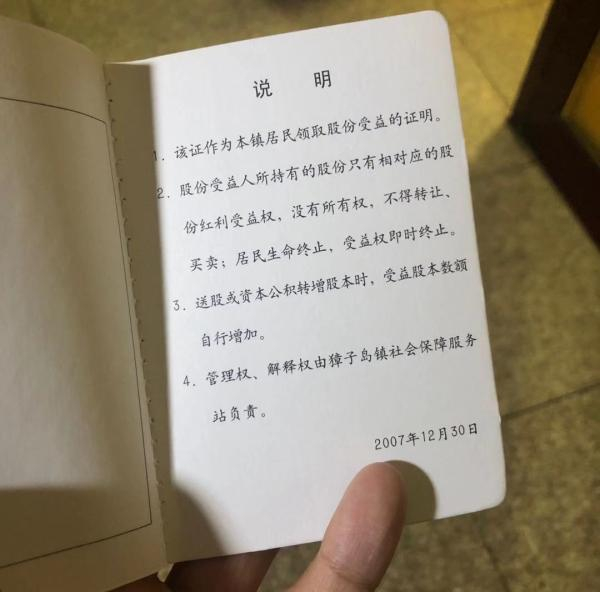 说 明
1. 该证作为本镇居民领取股份受益的证明。
2. 股份受益人所持有的股份只有相对应的股
份红利受益权，没有所有权，不得转让、
买卖；居民生命终止，受益权即时终止。
3. 送股或资本公积转增股本时，受益股本数额
自行增加。
4. 管理权、解释权由獐子岛镇社会保障服务
站负责。
2007年12月30日